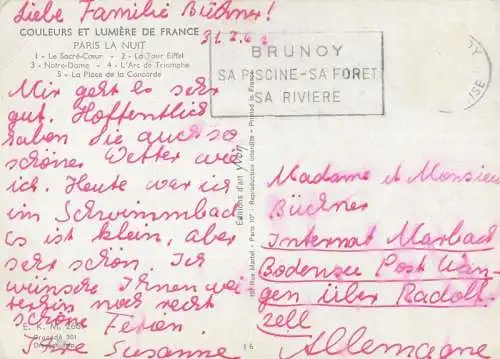 Liebe Familie Büchner!
COULEURS ET LUMIÈRE DE FRANCE
PARIS LA NUIT
1 - Le Sacré-Cœur - 2 - La Tour Eiffel
3 - Notre-Dame - 4 - L'Arc de Triomphe
5 - La Place de la Concorde
BRUNOY
SA PISCINE - SA FORET
SA RIVIERE
Mir geht es sehr
gut. Hoffentlich
haben Sie auch so
schönes Wetter wie
ich. Heute war ich
im Schwimmbad
es ist klein, aber
sehr schön. Ich
wünsche Ihnen wei
terhin noch recht
schöne Ferien.
Ihre Susanne
Editions d'art yvon
Paris 10e - Reproduction interdite - Printed in
Madame et Monsieur
Büchner
Internat Marbach
Bodensee Post Wan-
gen über Radolf
zell
Allemagne
E. K. M.
16